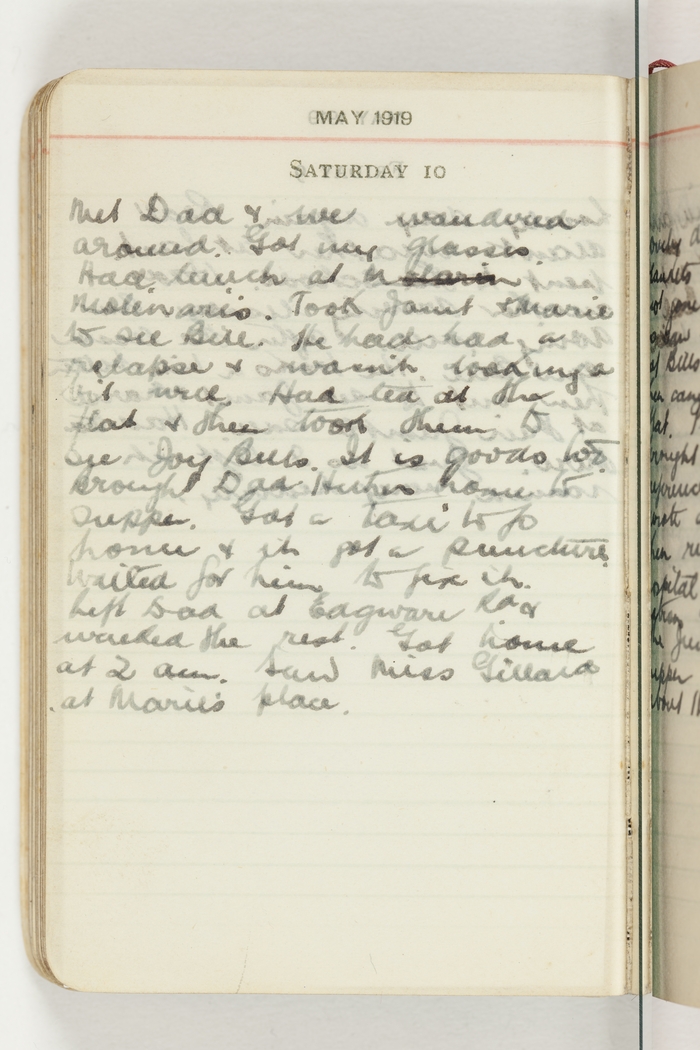 MAY 1919
SATURDAY 10
Met Dad & we wandered
around. Got my glasses.
Had lunch at
Molinaris. Took Janet & Marie
to see Bill. He had had a
relapse & wasn't looking a
bit well. Had tea at the
flat & then took them to
see Joy Bells. It is goods too
Brought Dad home to
supper. Got a taxi to go
home & it got a puncture
Waited for him to fix it.
Left Dad at Edgware Rd &
walked the rest. Got home
at 2 am. Saw Miss Gillard
at Marie's place.